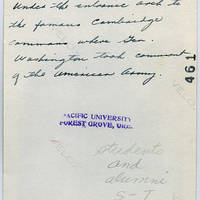 Under the entrance arch to
the famous Cambridge
commons where Gen.
Washington took command
of the American Army.
461
PACIFIC UNIVERSITY
FOREST GROVE, ORE.
students
and
alumni
S-T